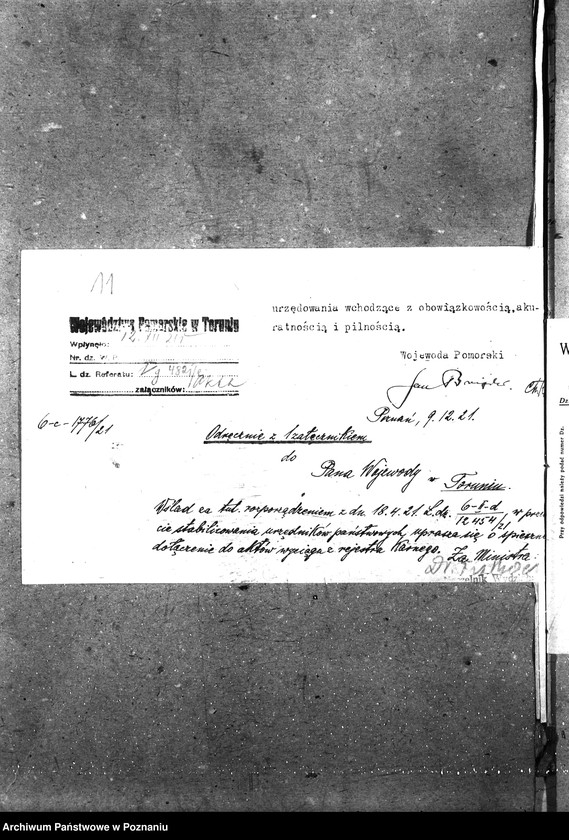 11
Województwo Pomorskie w Toruniu
Wpłynęło: 12. XII
Nr. dz. W. P.
L. dz. Referatu:
załączników:
urzędowania wchodzące z obowiązkowością,aku-
ratnością i pilnością.
Wojewoda Pomorski
Jan
6-c-1776/21
Poznań, 9.12.21.
Odręcznie z 1 załącznikiem
do
Pana Wojewody w Toruniu.
Wślad za tut. rozporządzeniem z dn 18.4.21. L.dz. 6-8-d/12454/21, w
cie stabilizowania urzędników państwowych, uprasza się o spieszne
dołączenie do aktów wyciąga z rejestra Karnego. Za Ministra:
Dr.
W
Dz.
Przy odpowiedzi należy podać numer Dz.
Archiwum Państwowe w Poznaniu